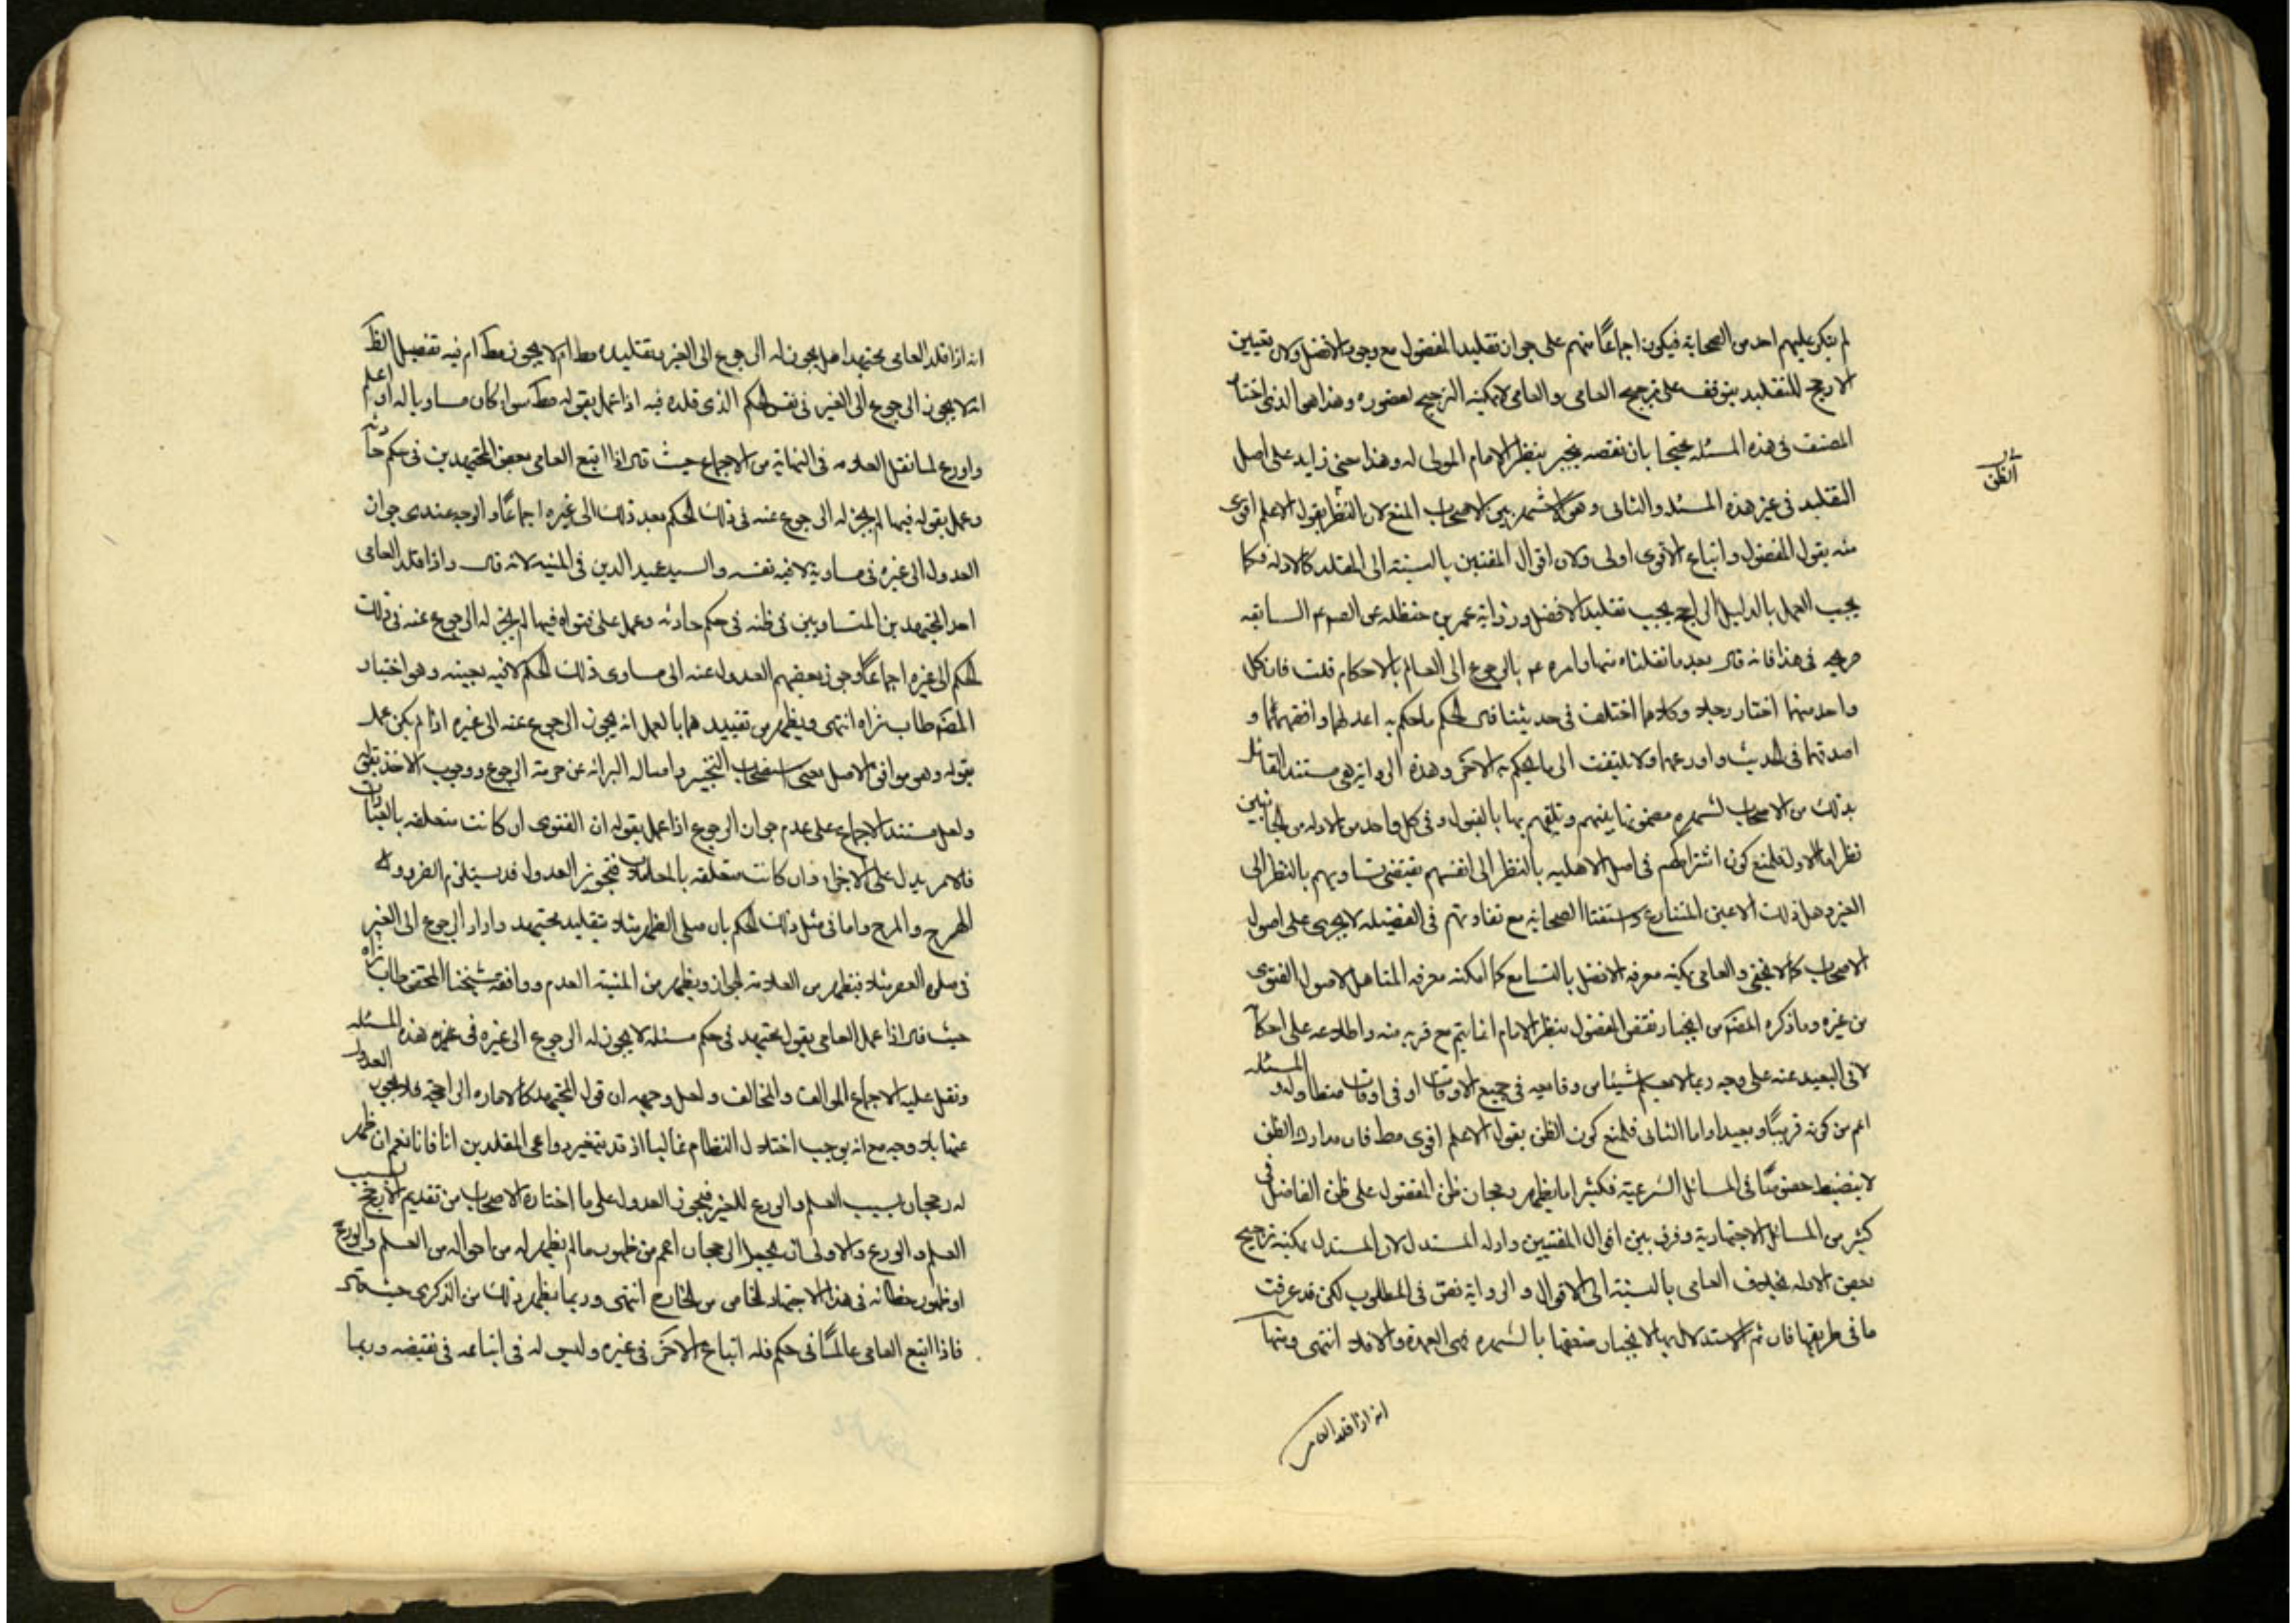 لم ينكر عليهم احد من الصحابة فيكون اجماعًا منهم على جواز تقليد المفضول مع وجود الافضل ولان تعيين
الارجح للتقليد يتوقف على ترجيح العامى والعامى لا يمكنه الترجيح لقصوره وهذا هو الذى اختاره
المصنف فى هذه المسئله محتجا بان نقصه ينجبر بنظر الامام المولى له وهذا معنى زايد على اصل
التقليد فى غير هذه المسئله والثانى وهو الاشهر بين الاصحاب المنع لان الظن بقول الاعلم اقوى
منه بقول المفضول واتباع الاقوى اولى ولان اقوال المفتين بالنسبة الى المقلد كالادله فكما
يجب العمل بالدليل الراجح يجب تقليد الافضل ورواية عمر بن حنظله عن الصم السابقه
صريحه فى هذا فانه قال بعد ما نقلناه منها وامره عم بالرجوع الى العالم بالاحكام قلت فان كل
واحد منهما اختار رجلا وكلاهما اختلف فى حديثنا قال الحكم ما حكم به اعدلهما وافقههما و
اصدقهما فى الحديث واورعهما ولا يلتفت الى ما يحكم به الاخر وهذه الرواية هى مستند القائل
بذلك من الاصحاب لشهرة مضمونها بينهم وتلقيهم بها بالقبول وفى كل واحد من الادله من الجانبين
نظر اما الاول فلمنع كون اشتراكهم فى اصل الاهليه بالنظر الى انفسهم يقتضى تساويهم بالنظر الى
الغير وهل ذلك الا عين المتنازع واستفتا الصحابه مع تفاوتهم فى الفضيله لا يجرى على اصول
الاصحاب كما لا يخفى والعامى يمكنه معرفه الافضل بالتسامع كما امكنه معرفه المتاهل لاصول الفتوى
من غيره وما ذكره المصم من انجبار نقص المفضول بنظر الامام انما يتم مع قربه منه واطلاعه على احكامه
لا فى البعيد عنه على وجه ربما لا يعلم شيئا من وقايعه فى جميع الاوقات او فى اوقات متطاوله و المسئله
اعم من كونه قريبًا وبعيدا واما الثانى فلمنع كون الظن بقول الاعلم اقوى مط فان مدارك الظن
لا ينضبط خصوصًا فى المسائل الشرعية فكثيرا ما يظهر رجحان ظن المفضول على ظن الفاضل فى
كثير من المسائل الاجتهادية وفرق بين اقوال المفتيين وادله المستدل لان المستدل يمكنه ترجيح
بعض الادله بخلاف العامى بالنسبة الى الاقوال والرواية نص فى المطلوب لكن قد عرفت
ما فى طريقها فان تم الاستدلال بها لانجبار ضعفها بالشهره فهى العمدة والا فلا انتهى ومنها
انه اذا قلد العامى
الظن
انه اذا قلد العامى مجتهدا هل يجوز له الرجوع الى الغير بتقليده مط ام لا يجوز مط ام فيه تفصيل الظ
انه لا يجوز الرجوع الى الغير فى نفس الحكم الذى قلده فيه اذا عمل بقوله مط سوا كان مساويا له او اعلم
واورع لما نقل العلامه فى النهاية من الاجماع حيث قال اذا اتبع العامى بعض المجتهدين فى حكم حادثه
وعمل بقوله فيها لم يجز له الرجوع عنه فى ذلك الحكم بعد ذلك الى غيره اجماعًا والوجه عندى جواز
العدول الى غيره فى مساويه لا فيه نفسه والسيد عميد الدين فى المنيه لانه قال واذا قلد العامى
احد المجتهدين المتساويين فى ظنه فى حكم حادثه وعمل على فتواه فيها لم يجز له الرجوع عنه فى ذلك
الحكم الى غيره اجماعًا وجوز بعضهم العدول عنه الى مساوى ذلك الحكم لا فيه بعينه وهو اختيار
المصم طاب ثراه انتهى ويظهر من تقييدهما بالعمل انه يجوز الرجوع عنه الى غيره اذا لم يكن عمل
بقوله وهو موافق الاصل يعنى استصحاب التخيير واصاله البرائه عن حرمة الرجوع ووجوب الاخذ بقوله
ولعل مستند الاجماع على عدم جواز الرجوع اذا عمل بقوله ان الفتوى ان كانت متعلقه بالعبادات
فالامر يدل على الاجزا وان كانت متعلقه بالمعاملات فتجويز العدول قد يستلزم الضرر و
الهرج والمرج واما فى مثل ذلك الحكم بان صلى الظهر مثلا بتقليد مجتهد واراد الرجوع الى الغير
فى صلوه العصر مثلا فيظهر من العلامة الجواز ويظهر من المنية العدم ووافقه شيخنا المحقق طاب ثراه
حيث قال اذا عمل العامى بقول مجتهد فى حكم مسئله لا يجوز له الرجوع الى غيره فى غيره هذه المسئله
ونقل عليه الاجماع الموالف والمخالف ولعل وجهه ان قول المجتهد كالاماره الراجحة فلا يجوز العدول
عنها بلا وجه مع انه يوجب اختلال النظام غالبا اذ قد يتغير دواعى المقلدين انا فانا نعم ان ظهر
له رجحان بسبب العلم والورع للغير فيجوز العدول على ما اختاره الاصحاب من تقديم الارجح بسبب
العلم والورع والاولى ان يجعل الرجحان اعم من ظهور ما لم يظهر له من احواله من العلم والورع
او ظهور خطائه فى هذا الاجتهاد الخاص من الخارج انتهى وربما يظهر ذلك من الذكرى حيث قال
فاذا اتبع العامى عالمًا فى حكم فله اتباع الاخر فى غيره وليس له فى اتباعه فى نقيضه وربما